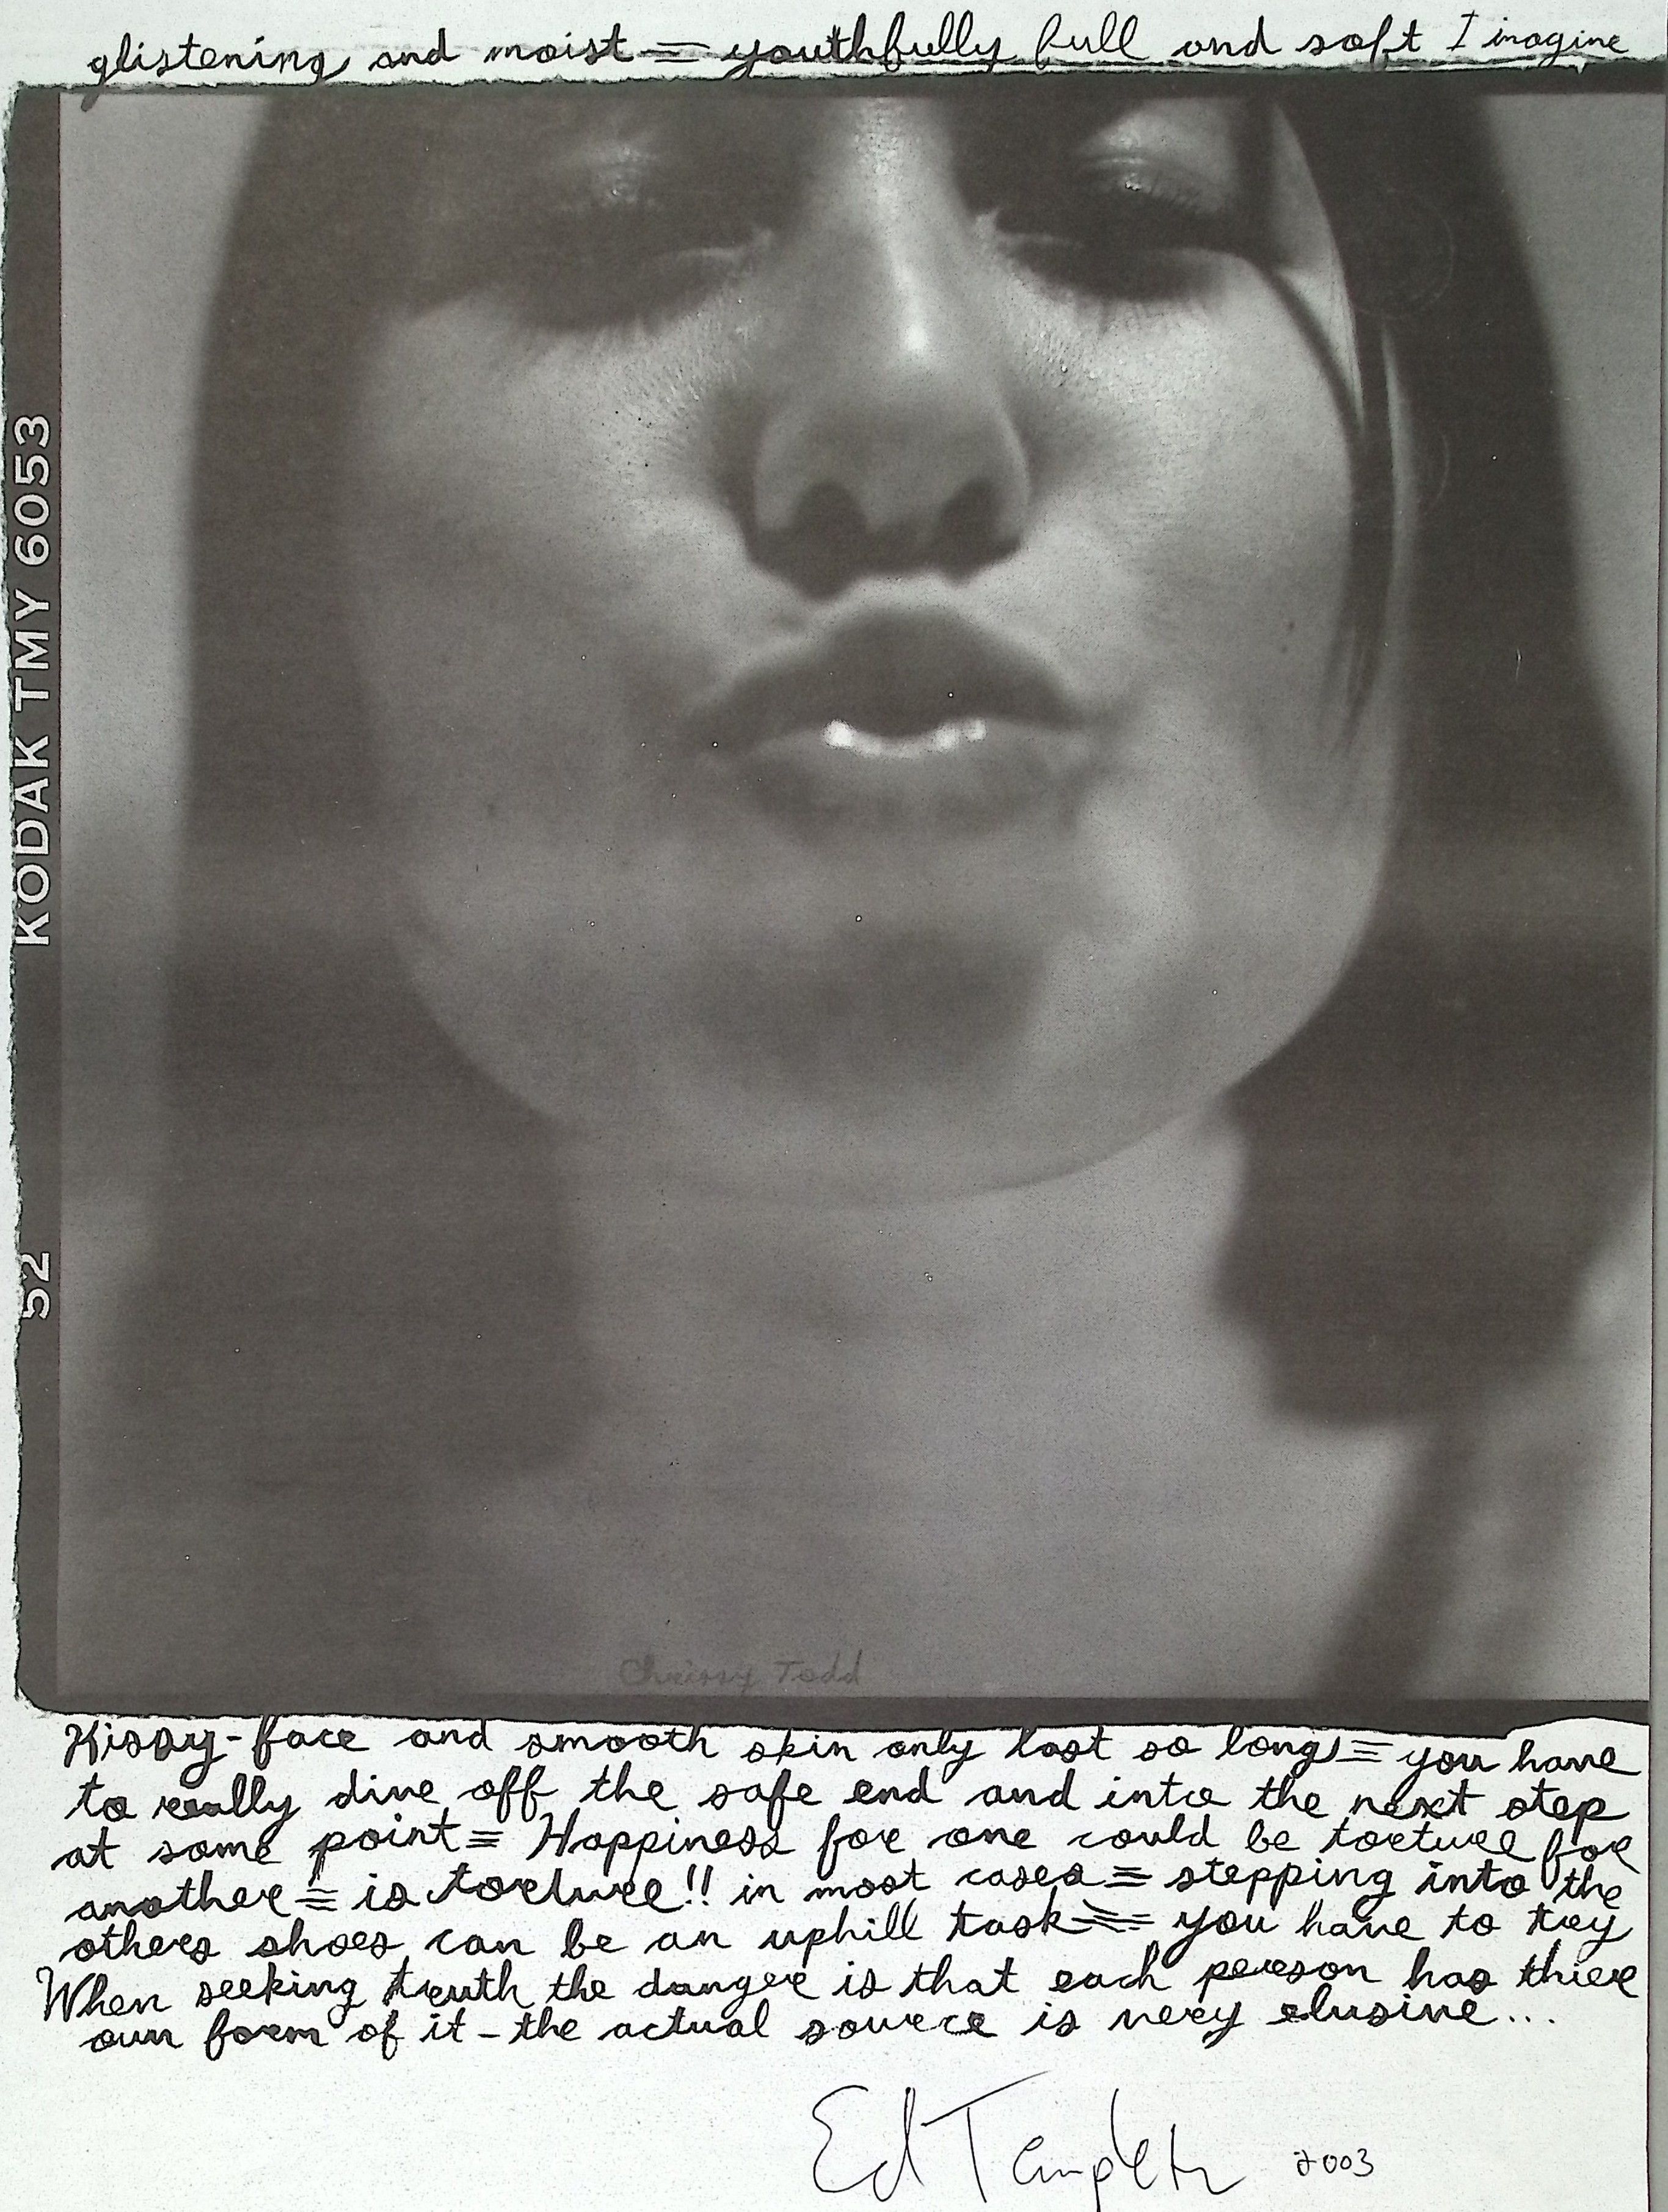 glistening and moist = youthfully full and soft I imagine
KODAK TMY 6053
52
Chrissy Todd
Kissy-face and smooth skin only last so long = you have
to really dive off the safe end and into the next step
at some point = Happiness for one could be torture for
another = is torture!! in most cases = stepping into the
others shoes can be an uphill task = you have to try
When seeking truth the danger is that each person has thier
own form of it - the actual source is very elusive...
Ed Templeton 2003